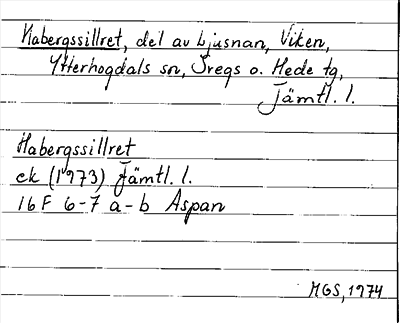 Habergssillret, del av Ljusnan, Viken,
Ytterhogdals sn, Svegs o. Hede tg,
Jämtl. l.
Habergssillret
ek (1973) Jämtl. l.
16 F 6-7 a-b Aspan
MGS, 1974